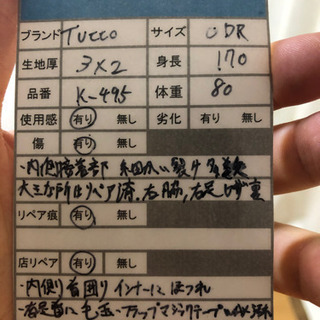 ブランド Tucco サイズ ODR
生地厚 3×2 身長 170
品番 K-495 体重 80
使用感 有り 無し 劣化 有り 無し
傷 有り 無し
・内側接着部 細かい裂け多数
大きな所はリペア済、右脇、右足ひざ裏
リペア痕 有り 無し
店リペア 有り 無し
・内側首囲り インナーにほつれ
毛玉 フラップマジックテープ